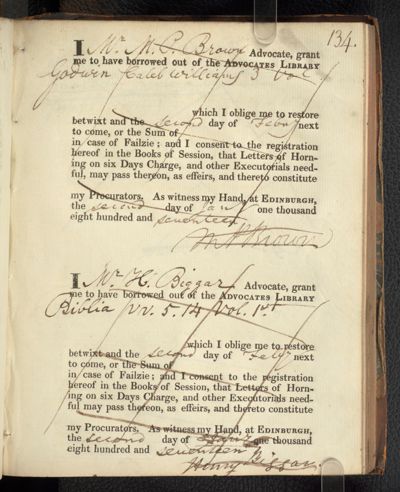 134.
I Mr. M. P. Brown Advocate, grant
me to have borrowed out of the ADVOCATES LIBRARY
Godwin Caleb Williams 3 Vol
which I oblige me to restore
betwixt and the second day of Feby next
to come, or the Sum of
in case of Failzie; and I consent to the registration
hereof in the Books of Session, that Letters of Horn-
ing on six Days Charge, and other Executorials need-
ful, may pass thereon, as effeirs, and thereto constitute
my Procurators. As witness my Hand, at EDINBURGH,
the second day of Jany one thousand
eight hundred and seventeen
M P Brown
I Mr. H. Biggar Advocate, grant
me to have borrowed out of the ADVOCATES LIBRARY
Biblia 5. 14 Vol. 1st
which I oblige me to restore
betwixt and the second day of Feby next
to come, or the Sum of
in case of Failzie; and I consent to the registration
hereof in the Books of Session, that Letters of Horn-
ing on six Days Charge, and other Executorials need-
ful may pass thereon, as effeirs, and thereto constitute
my Procurators. As witness my Hand, at EDINBURGH,
the second day of Jany one thousand
eight hundred and seventeen
Henry Biggar.